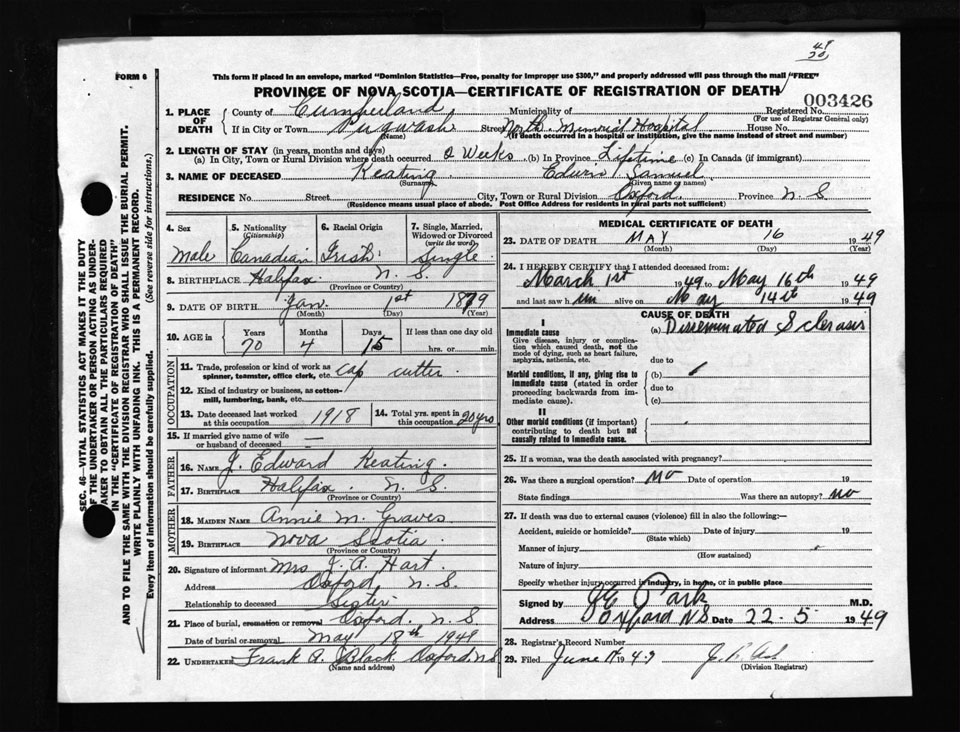 49
20
FORM 6
This form if placed in an envelope, marked "Dominion Statistics—Free, penalty for improper use $300," and properly addressed will pass through the mail "FREE"
PROVINCE OF NOVA SCOTIA—CERTIFICATE OF REGISTRATION OF DEATH
003426
1. PLACE OF DEATH County of Cumberland Municipality of Registered No. (For use of Registrar General only)
If in City or Town Pugwash (Name) Street North Memorial Hospital House No.
(If death occurred in a hospital or institution, give the name instead of street and number)
2. LENGTH OF STAY (in years, months and days)
(a) In City, Town or Rural Division where death occurred 2 Weeks (b) In Province Lifetime (c) In Canada (if immigrant)
3. NAME OF DECEASED Keating (Surname) Edwin Samuel (Given name or names)
RESIDENCE No. Street City, Town or Rural Division Oxford Province N. S
(Residence means usual place of abode. Post Office Address for residents in rural parts not sufficient)
SEC. 46—VITAL STATISTICS ACT MAKES IT THE DUTY
OF THE UNDERTAKER OR PERSON ACTING AS UNDER-
TAKER TO OBTAIN ALL THE PARTICULARS REQUIRED
IN THE "CERTIFICATE OF REGISTRATION OF DEATH"
AND TO FILE THE SAME WITH THE DIVISION REGISTRAR WHO SHALL ISSUE THE BURIAL PERMIT.
WRITE PLAINLY WITH UNFADING INK. THIS IS A PERMANENT RECORD.
Every item of information should be carefully supplied. (See reverse side for instructions.)
4. Sex Male
5. Nationality (Citizenship) Canadian
6. Racial Origin Irish
7. Single, Married, Widowed or Divorced (write the word) Single
8. BIRTHPLACE Halifax N. S.
(Province or Country)
9. DATE OF BIRTH Jan. 1st 1879
(Month) (Day) (Year)
10. AGE in Years 70 Months 4 Days 15 If less than one day old hrs. or min.
OCCUPATION
11. Trade, profession or kind of work as spinner, teamster, office clerk, etc. cap cutter
12. Kind of industry or business, as cotton-mill, lumbering, bank, etc.
13. Date deceased last worked at this occupation 1918
14. Total yrs. spent in this occupation 20 yrs
15. If married give name of wife or husband of deceased —
FATHER
16. NAME J. Edward Keating.
17. BIRTHPLACE Halifax. N. S.
(Province or Country)
MOTHER
18. MAIDEN NAME Annie M. Graves
19. BIRTHPLACE Nova Scotia
(Province or Country)
20. Signature of informant Mrs J. A. Hart
Address Oxford, N. S.
Relationship to deceased Sister
21. Place of burial, cremation or removal Oxford. N. S
Date of burial or removal May 18th 1949
22. UNDERTAKER Frank A. Black Oxford, N.S
(Name and address)
MEDICAL CERTIFICATE OF DEATH
23. DATE OF DEATH MAY 16 1949
(Month) (Day) (Year)
24. I HEREBY CERTIFY that I attended deceased from:
March 1st 1949 to May 16th 1949
and last saw him alive on May 14th 1949
CAUSE OF DEATH
I
Immediate cause (a) Disseminated Sclerosis
Give disease, injury or complication which caused death, not the mode of dying, such as heart failure, asphyxia, asthenia, etc.
due to
Morbid conditions, if any, giving rise to immediate cause (stated in order proceeding backwards from immediate cause). (b)
due to
(c)
II
Other morbid conditions (if important) contributing to death but not causally related to immediate cause.
25. If a woman, was the death associated with pregnancy?
26. Was there a surgical operation? No Date of operation 19
State findings Was there an autopsy? no
27. If death was due to external causes (violence) fill in also the following:—
Accident, suicide or homicide? (State which) Date of injury 19
Manner of injury (How sustained)
Nature of injury
Specify whether injury occurred in industry, in home, or in public place
Signed by Park M.D.
Address Oxford NS Date 22-5 1949
28. Registrar's Record Number
29. Filed June 1949
(Division Registrar)